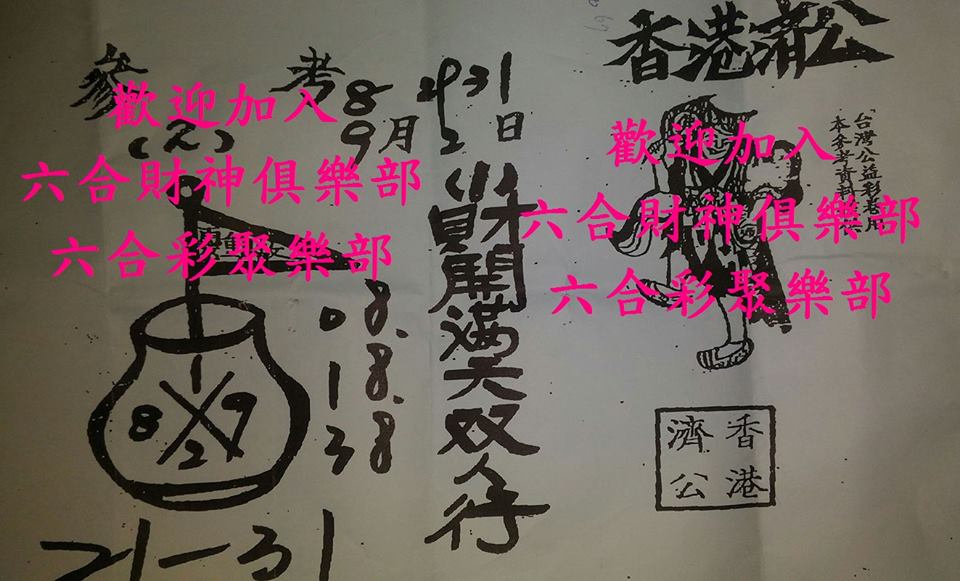 香港濟公
台灣公益彩
本參考資料
歡迎加入
六合財神俱樂部
六合彩聚樂部
香港
濟公
參考
(2)
8 29 31
9月2日
開滿天双人行
歡迎加入
六合財神俱樂部
六合彩聚樂部
08.
18.
38
1
8 9
2
21-31